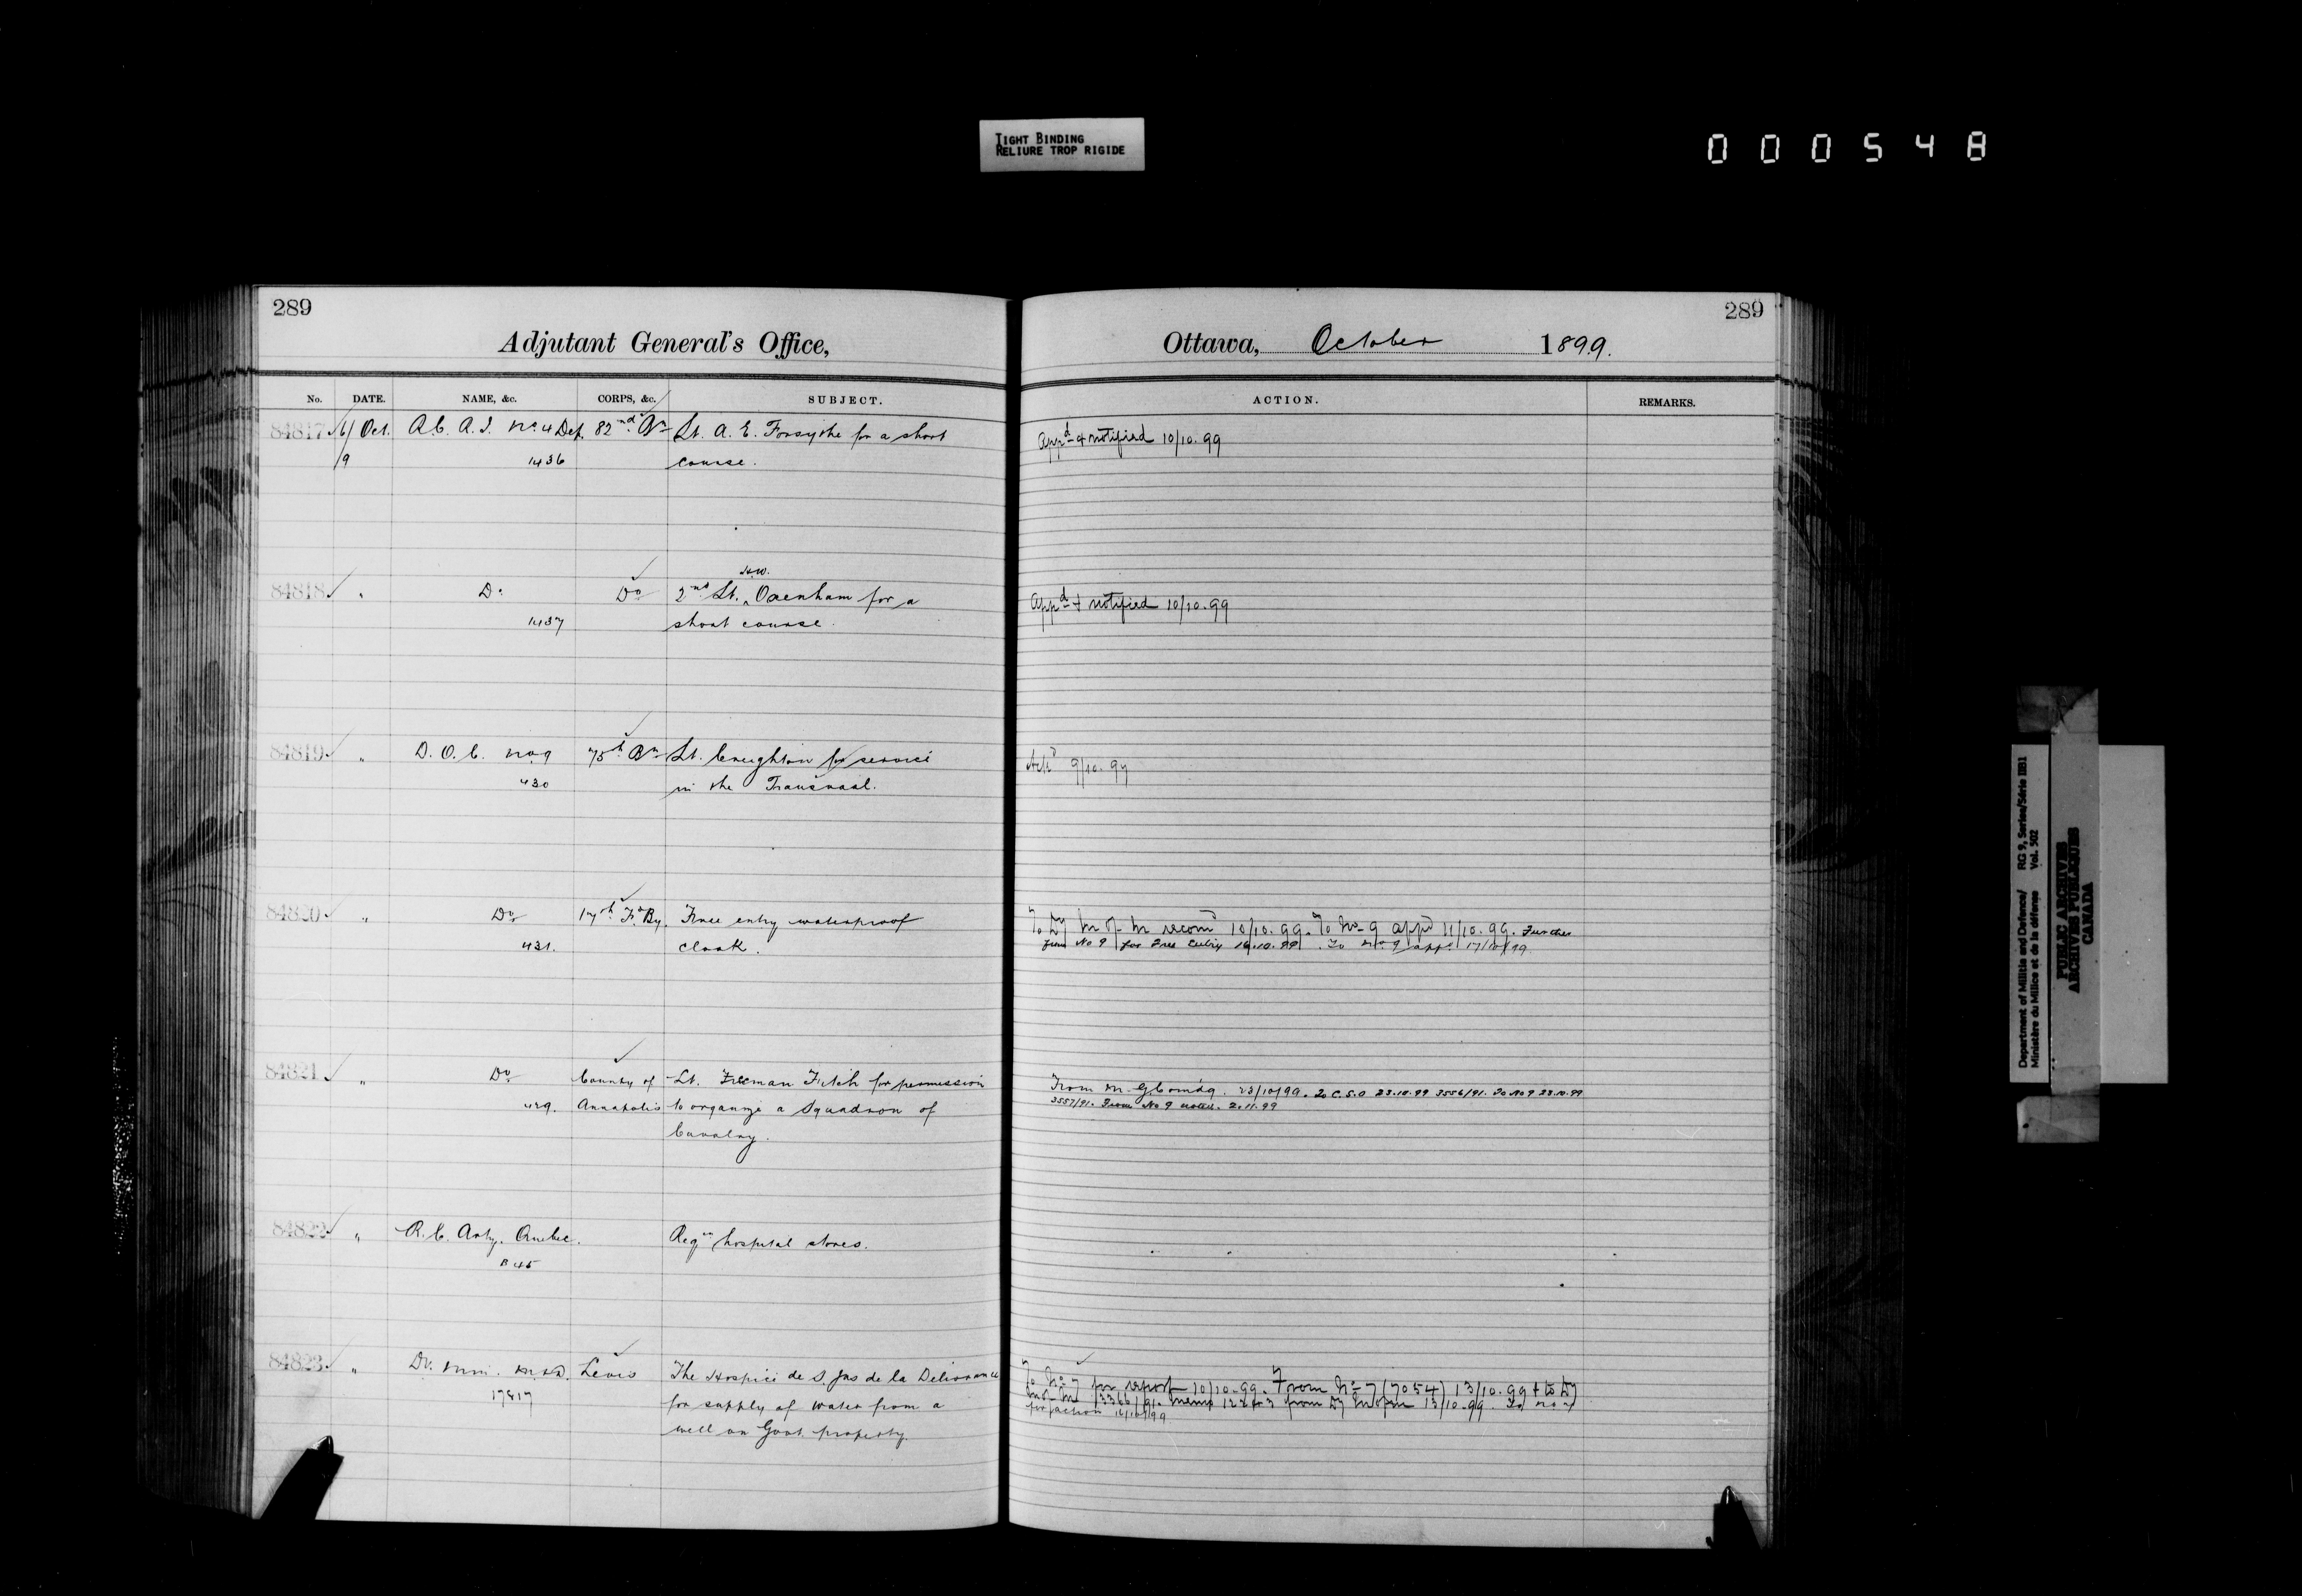 TIGHT BINDING
RELIURE TROP RIGIDE
000548
289
Adjutant General's Office,
No. DATE. NAME, &c. CORPS, &c. SUBJECT.
84817 6/ Oct. R.C. R.I. No 4 Dep. 82nd Bn Lt. A. E. Forsythe for a short
/9 1436 course.
H.W.
84818 " Do Do 2nd Lt. Oxenham for a
1437 short course.
84819 " D. O. C. No 9 75th Bn Lt. Creighton for service
430 in the Transvaal.
84820 " Do 17th Fd By. Free entry waterproof
431. cloak.
84821 " Do County of Lt. Freeman Fitch for permission
429. Annapolis to organize a Squadron of
Cavalry.
84822 " R. C. Arty. Quebec. Reqn hospital stores.
B 45
84823 " Dy. Min. M. & D. Levis The Hospice de S. Jos de la Delivrance
17817 for supply of water from a
well on Govt. property.
289
Ottawa, October 1899.
ACTION. REMARKS.
Appd & notified 10/10.99
Appd & notified 10/10.99
Ackd 9/10.99
To Dy M of M recomd 10/10.99. To No 9 appd 11/10.99. Further
from No 9 for Free Entry 16.10.99. To No 9 appd 17/10/99.
From M. G. Comdg. 23/10/99. To C.S.O 23.10.99 3556/91. To No 9 23.10.99
3557/91. From No 9 noted. 2.11.99
To No 7 for report 10/10.99. From No 7 (7054) 13/10.99 & to Dy
M of M 3366/91. Memo from Dy M of M 13/10.99. To No 7
for action 16/10/99
Department of Militia and Defence/ RG 9, Series/Série IIB1
Ministère du Milice et de la défense Vol. 502
PUBLIC ARCHIVES
ARCHIVES PUBLIQUES
CANADA